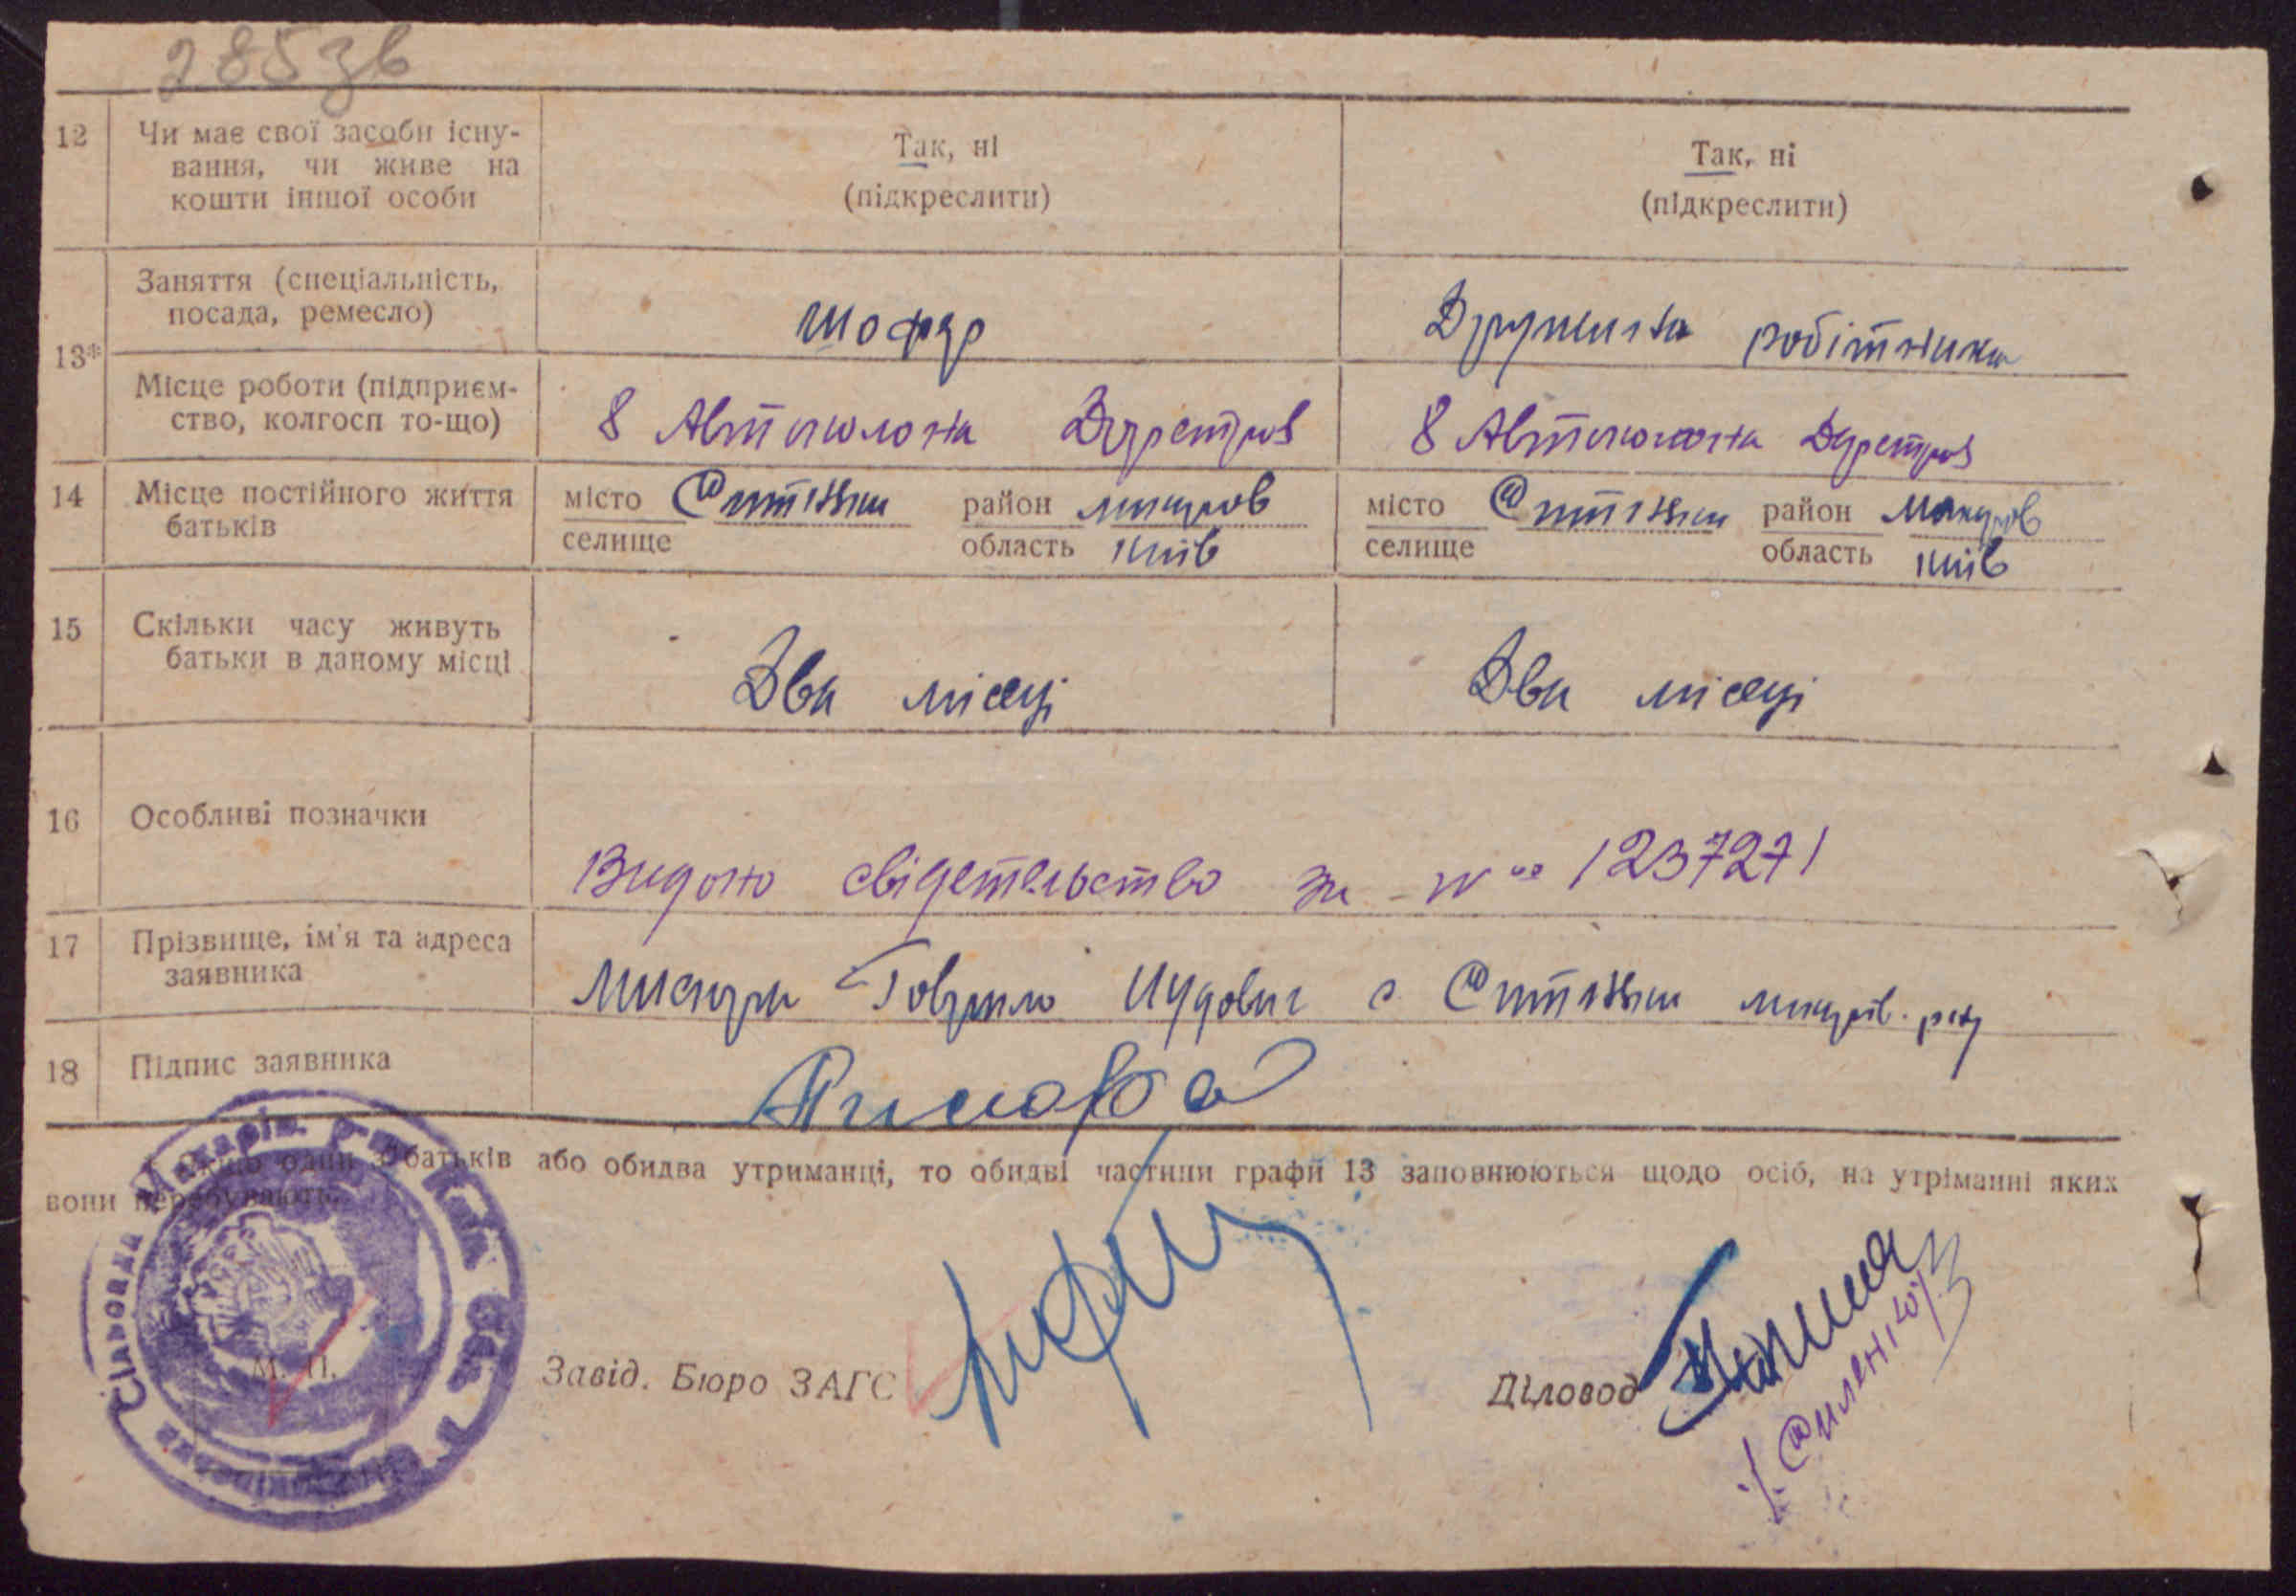 285зв
12 Чи має свої засоби існу-
вання, чи живе на
кошти іншої особи
Так, ні
(підкреслити)
Так, ні
(підкреслити)
13*
Заняття (спеціальність,
посада, ремесло)
шофер
Дружина робітника
Місце роботи (підприєм-
ство, колгосп то-що)
8 Автоколона
8 Автоколона
14 Місце постійного життя
батьків
місто Ситняки район макаров
селище область київ
місто Ситняки район Макаров
селище область київ
15 Скільки часу живуть
батьки в даному місці
Два місяці
Два місяці
16 Особливі позначки
Видоно свідетельство за N 1237271
17 Прізвище, ім'я та адреса
заявника
Гаврило с Ситняки макарів.
18 Підпис заявника
Якщо один з батьків або обидва утриманці, то обидві частини графи 13 заповнюються щодо осіб, на утріманні яких
вони перебувають.
М. П.
Завід. Бюро ЗАГС
Діловод